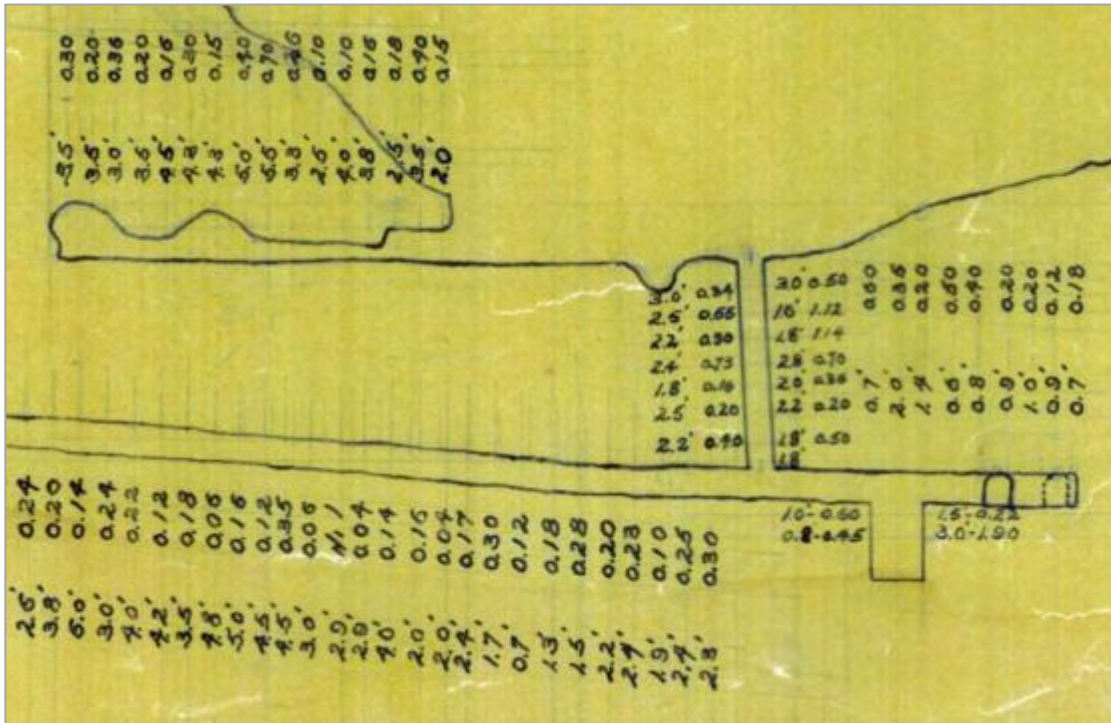 0.30
0.20
0.36
0.20
0.16
0.30
0.15
0.40
0.70
0.10
0.10
0.16
0.18
0.40
0.15
3.5'
3.5'
3.0'
3.6'
4.5'
4.3'
4.3'
5.0'
5.5'
3.3'
2.5'
4.0'
3.8'
2.5'
3.5'
2.0'
3.0' 0.34
2.5' 0.65
2.2' 0.30
2.4' 0.73
1.8' 0.16
2.5' 0.20
2.2' 0.40
3.0' 0.50
1.6' 1.12
1.8' 1.14
2.8' 0.70
2.0' 0.36
2.2' 0.20
1.8' 0.50
1.8'
0.60
0.36
0.20
0.60
0.40
0.20
0.20
0.12
0.18
0.7'
2.0'
1.4'
0.6'
0.8'
0.9'
1.0'
0.9'
0.7'
1.0'-0.60
0.8-0.45
1.5'-0.22
3.0'-1.90
0.24
0.20
0.14
0.24
0.22
0.12
0.18
0.06
0.16
0.12
0.35
0.06
Nil
0.04
0.14
0.16
0.04
0.17
0.30
0.12
0.18
0.28
0.20
0.23
0.10
0.25
0.30
2.6'
3.8'
5.0'
3.0'
4.0'
4.2'
3.5'
4.8'
5.0'
4.5'
4.5'
3.0'
2.9'
2.8'
4.0'
2.0'
2.0'
2.4'
1.7'
0.7'
1.3'
1.5'
2.2'
2.4'
1.9'
2.4'
2.3'